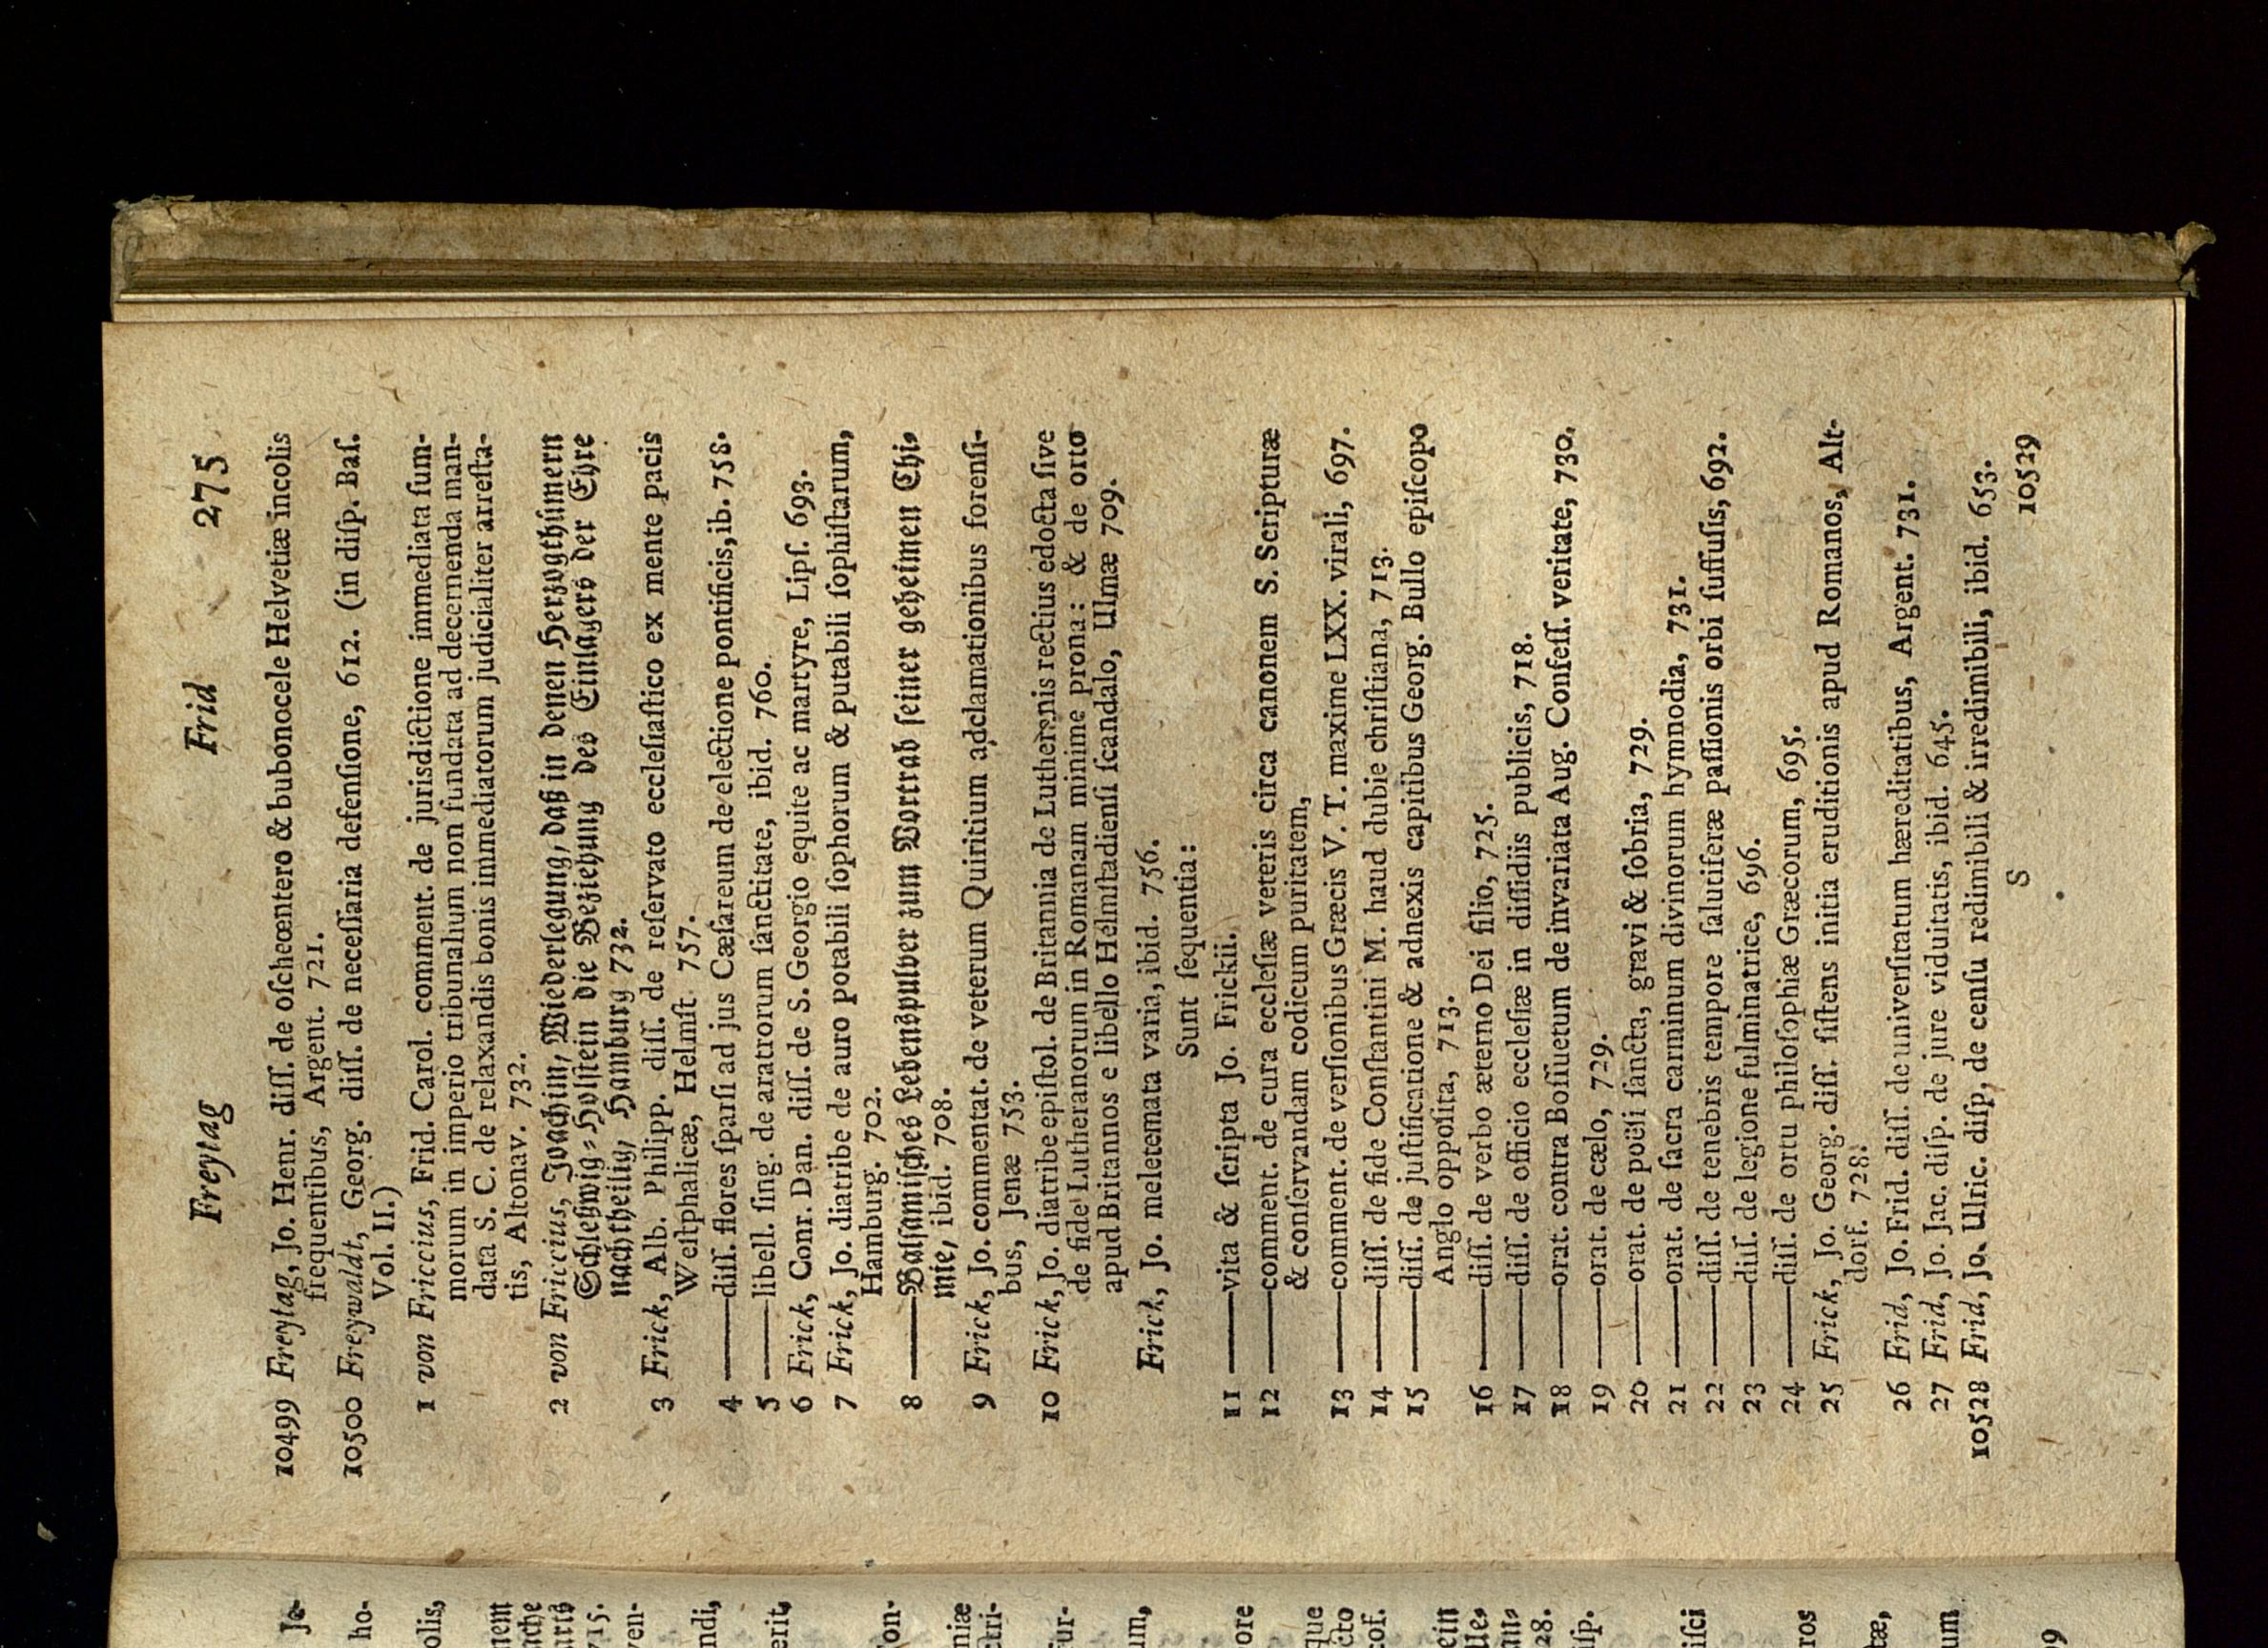 Freytag Frid 275
10499 Freytag, Jo. Henr. diſſ. de oſcheœntero & bubonocele Helvetiæ incolis
frequentibus, Argent. 721.
10500 Freywaldt, Georg. diſſ. de neceſſaria defenſione, 612. (in diſp. Baſ.
Vol. II.)
1 von Friccius, Frid. Carol. comment. de jurisdictione immediata ſum-
morum in imperio tribunalium non fundata ad decernenda man-
data S. C. de relaxandis bonis immediatorum judicialiter arreſta-
tis, Altonav. 732.
2 von Friccius, Joachim, Wiederlegung, daß in denen Herzogthümern
Schleßwig-Holſtein die Beziehung des Einlagers der Ehre
nachtheilig, Hamburg 732.
3 Frick, Alb. Philipp. diſſ. de reſervato eccleſiaſtico ex mente pacis
Weſtphalicæ, Helmſt. 757.
4 ——diſſ. flores ſparſi ad jus Cæſareum de electione pontificis, ib. 758.
5 ——libell. ſing. de aratrorum ſanctitate, ibid. 760.
6 Frick, Conr. Dan. diſſ. de S. Georgio equite ac martyre, Lipſ. 693.
7 Frick, Jo. diatribe de auro potabili ſophorum & putabili ſophiſtarum,
Hamburg. 702.
8 ——Balſamiſches Lebenspulver zum Vortrab ſeiner geheimen Chi-
mie, ibid. 708.
9 Frick, Jo. commentat. de veterum Quiritium adclamationibus forenſi-
bus, Jenæ 753.
10 Frick, Jo. diatribe epiſtol. de Britannia de Lutherenis rectius edocta ſive
de fide Lutheranorum in Romanam minime prona: & de orto
apud Britannos e libello Helmſtadienſi ſcandalo, Ulmæ 709.
Frick, Jo. meletemata varia, ibid. 756.
Sunt ſequentia:
11 ——vita & ſcripta Jo. Frickii.
12 ——comment. de cura eccleſiæ veteris circa canonem S. Scripturæ
& conſervandam codicum puritatem,
13 ——comment. de verſionibus Græcis V. T. maxime LXX. virali, 697.
14 ——diſſ. de fide Conſtantini M. haud dubie chriſtiana, 713.
15 ——diſſ. de juſtificatione & adnexis capitibus Georg. Bullo epiſcopo
Anglo oppoſita, 713.
16 ——diſſ. de verbo æterno Dei filio, 725.
17 ——diſſ. de officio eccleſiæ in diſſidiis publicis, 718.
18 ——orat. contra Boſſuetum de invariata Aug. Confeſſ. veritate, 730.
19 ——orat. de cælo, 729.
20 ——orat. de poëſi ſancta, gravi & ſobria, 729.
21 ——orat. de ſacra carminum divinorum hymnodia, 731.
22 ——diſſ. de tenebris tempore ſalutiferæ paſſionis orbi ſuffuſis, 692.
23 ——diſſ. de legione fulminatrice, 696.
24 ——diſſ. de ortu philoſophiæ Græcorum, 695.
25 Frick, Jo. Georg. diſſ. ſiſtens initia eruditionis apud Romanos, Alt-
dorf. 728.
26 Frid, Jo. Frid. diſſ. de univerſitatum hæreditatibus, Argent. 731.
27 Frid, Jo. Jac. diſp. de jure viduitatis, ibid. 645.
10528 Frid, Jo. Ulric. diſp. de cenſu redimibili & irredimibili, ibid. 653.
S 10529
ho-
olis,
nem
ache
715.
ven-
ndi,
erit,
niæ
ctri-
um,
ore
que
cto
cof.
ein
28.
iſp.
iſci
ros
tæ,
um